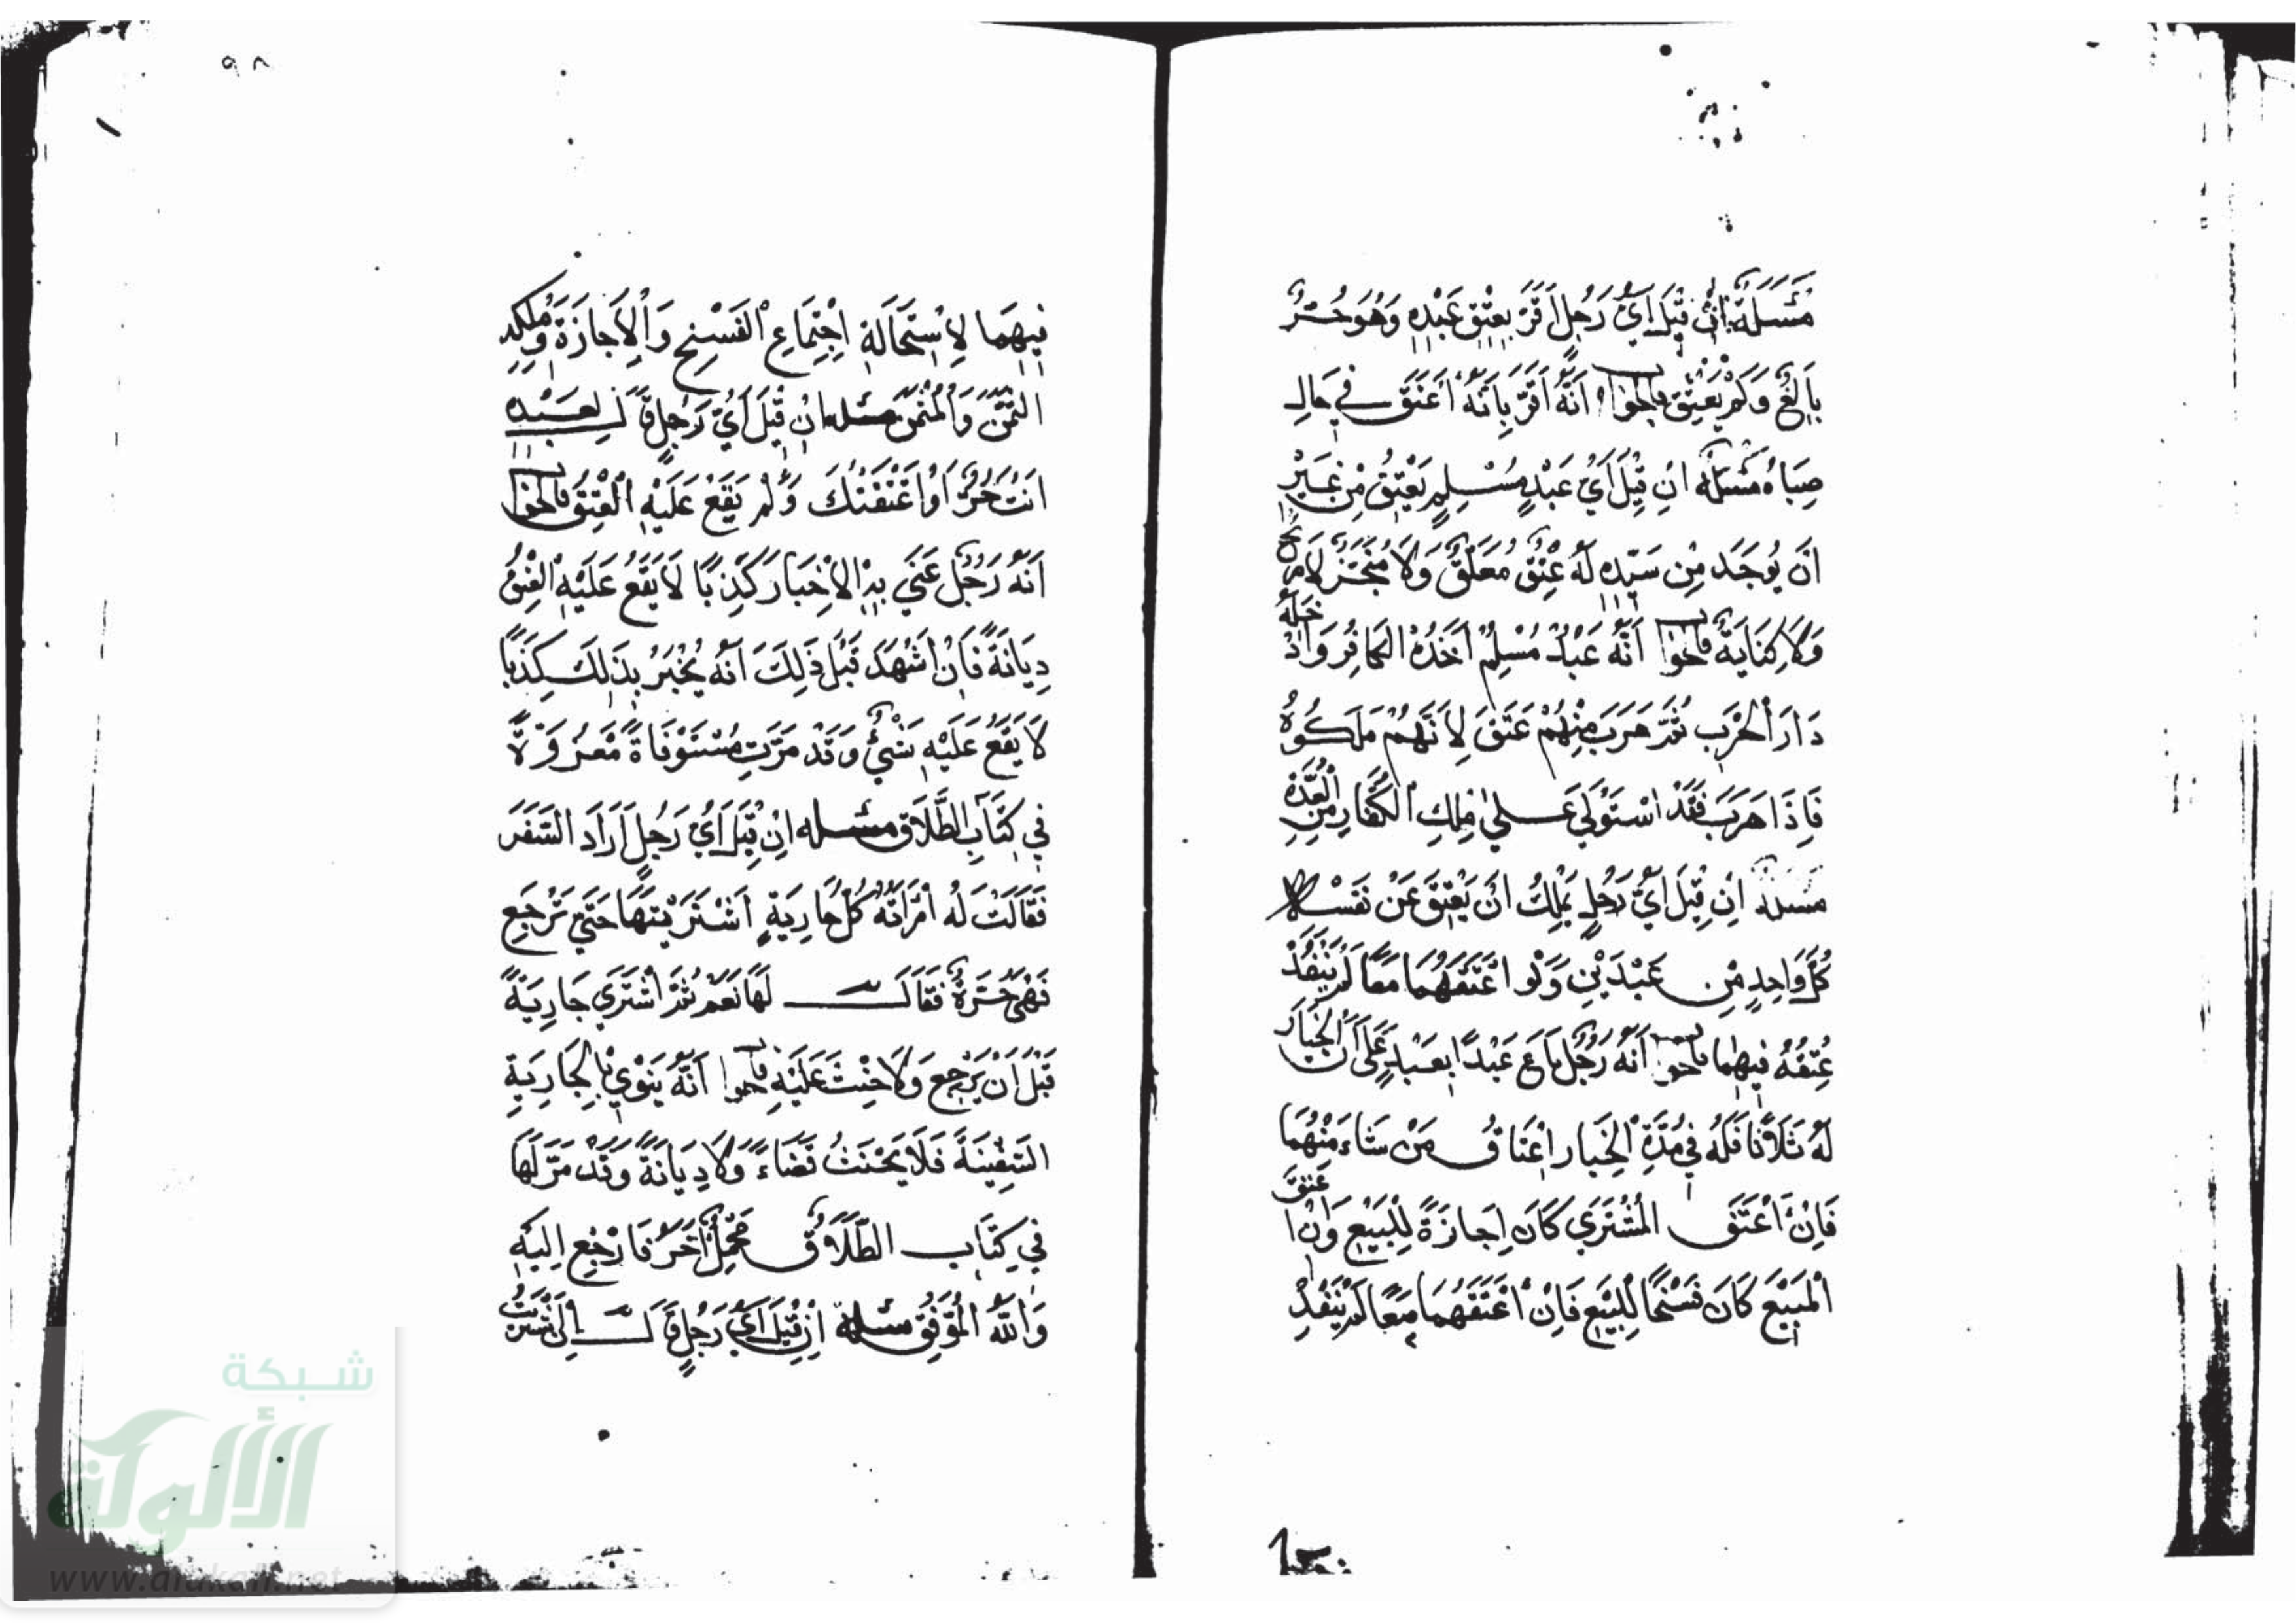 مَسْئَلَةٌ اِنْ قِيْلَ اَيُّ رَجُلٍ اَقَرَّ بِعِتْقِ عَبْدِهِ وَهُوَ حُرٌّ
بَالِغٌ وَلَمْ يَعْتِقْ فالجوا اَنَّهُ اَقَرَّ بِاَنَّهُ اَعْتَقَ فِي حَالِ
صِبَاهُ مَسْئَلَةٌ اِنْ قِيْلَ اَيُّ عَبْدٍ مُسْلِمٍ يَعْتِقُ مِنْ غَيْرِ
اَنْ يُوجَدَ مِنْ سَيِّدِهِ لَهُ عِتْقٌ مُعَلَّقٌ وَلَا مُنَجَّزٌ
وَلَا كِتَابَةٌ فالجوا اَنَّهُ عَبْدٌ مُسْلِمٌ اَخَذَهُ الكَافِرُ وَادْخَلَهُ
دَارَ الْحَرْبِ ثُمَّ هَرَبَ مِنْهُمْ عَتَقَ لِاَنَّهُمْ مَلَكُوهُ
فَاِذَا هَرَبَ فَقَدْ اسْتَوْلَى عَلَى مِلْكِ الْكُفَّارِ مِنَ الْعُدَّةِ
مسئلة اِنْ قِيْلَ اَيُّ رَجُلٍ يَمْلِكُ اَنْ يَعْتِقَ عَنْ نَفْسِهِ
كُلَّ وَاحِدٍ مِنْ عَبْدَيْنِ وَلَو اَعْتَقَهُمَا مَعًا لَمْ يَنْفُذْ
عِتْقُهُ فِيهِمَا فالجوا اَنَّهُ رَجُلٌ بَاعَ عَبْدًا بِعَبْدٍ عَلَى اَنَّ الْخِيَارَ
لَهُ ثَلَاثًا فَلَهُ فِي مُدَّةِ الْخِيَارِ اِعْتَاقُ مَنْ شَاءَ مِنْهُمَا
فَاِنْ اَعْتَقَ المُشْتَرَي كَانَ اِجَازَةً لِلْبَيْعِ وَاِنْ اعتق
الْمَبِيْعَ كَانَ فَسْخًا لِلْبَيْعِ فَاِنْ اَعْتَقَهُمَا مَعًا لَمْ يَنْفُذْ
٩٨
فِيْهِمَا لِاسْتِحَالَةِ اِجْتِمَاعِ الْفَسْخِ وَالْاِجَازَةِ وَمُلْكِهِ
الثَّمَنَ وَالْمُثْمَنَ مسئله اِنْ قِيْلَ اَيُّ رَجُلٍ قَالَ لِعَبْدِهِ
اَنْتَ حُرٌّ اَوْ اَعْتَقْتُكَ وَلَمْ يَقَعْ عَلَيْهِ الْعِتْقُ فالجوا
اَنَّهُ رَجُلٌ عَنَى بِهِ الْاِخْبَارَ كَذِبًا لَا يَقَعُ عَلَيْهِ الْعِتْقُ
دِيَانَةً فَاِنْ اَشْهَدَ قَبْلَ ذَلِكَ اَنَّهُ يُخْبِرُ بِذَلِكَ كِذْبًا
لَا يَقَعُ عَلَيْهِ شَيْءٌ وَقَدْ مَرَّتْ مُسْتَوْفَاةً مَعْزُوَّةً
فِي كِتَابِ الطَّلَاقِ مسئله اِنْ قِيْلَ اَيُّ رَجُلٍ اَرَادَ السَّفَرَ
فَقَالَتْ لَهُ امْرَاَتُهُ كُلُّ جَارِيَةٍ اشْتَرَيْتَهَا حَتَّى تَرْجِعَ
فَهِيَ حُرَّةٌ فَقَالَ لَهَا نَعَمْ ثُمَّ اشْتَرَى جَارِيَةً
قَبْلَ اَنْ يَرْجِعَ وَلَا حِنْثَ عَلَيْهِ فالجوا اَنَّهُ يَنْوِي بِالْجَارِيَةِ
السَّفِيْنَةَ فَلَا يَحْنَثُ قَضَاءً وَلَا دِيَانَةً وَقَدْ مَرَّ لَهَا
فِي كِتَابِ الطَّلَاقِ مَحْمَلٌ آخَرُ فَارْجِعْ اِلَيْهِ
وَاللهُ الْمُوَفِّقُ مسئلة اِنْ قِيْلَ اَيُّ رَجُلٍ قَالَ اِنْ اشْتَرَيْتُ
شبكة
الألوكة
www.alukah.net